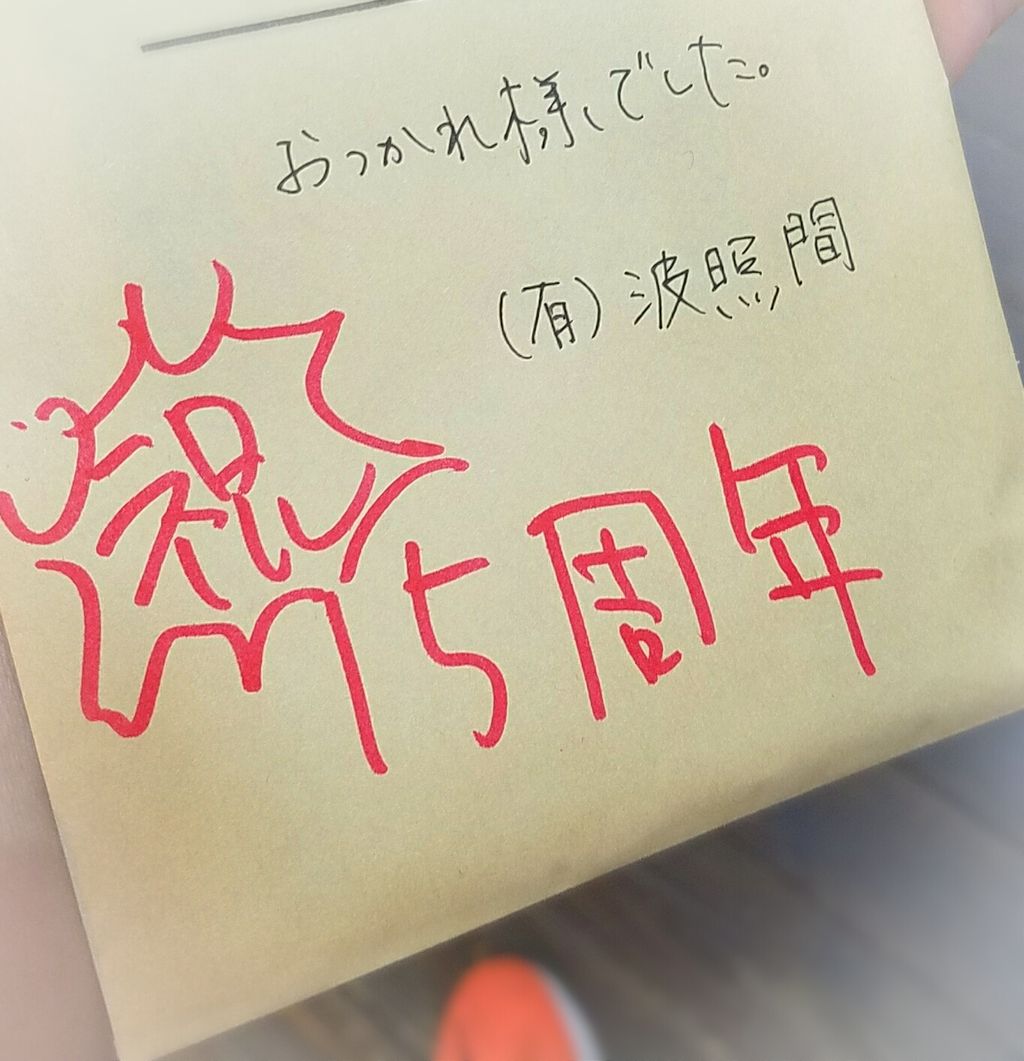 おつかれ様でした。
(有)波照間
祝
5周年